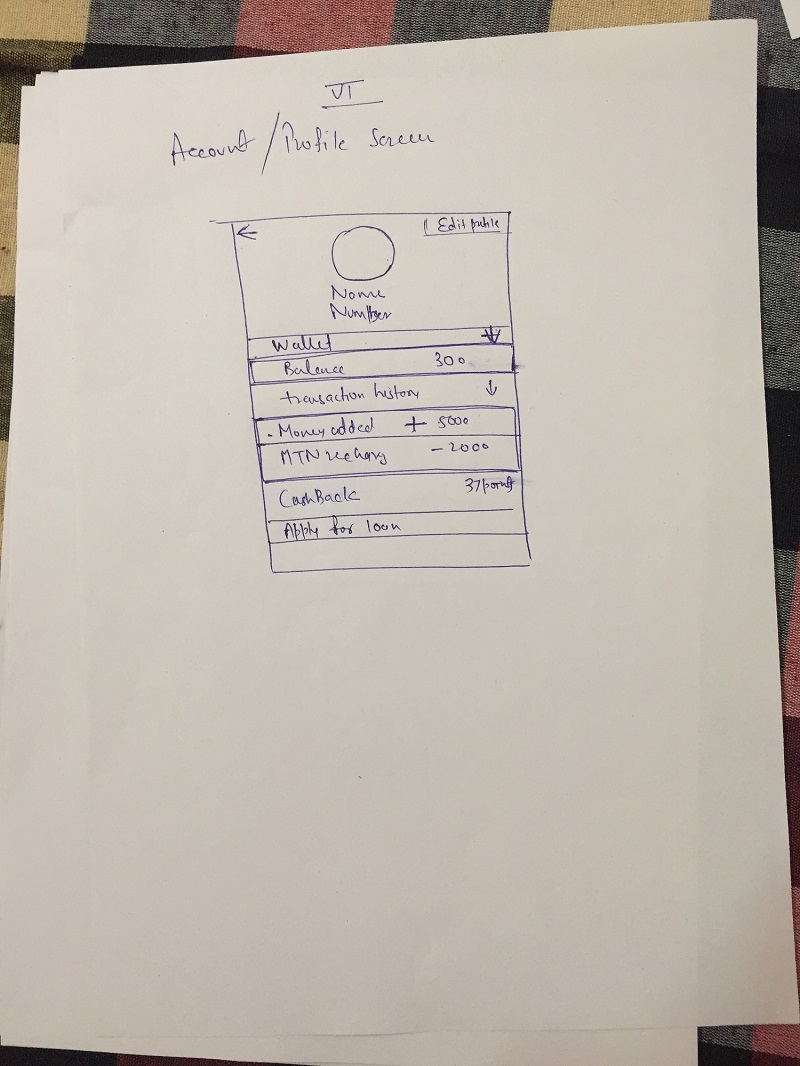 VI
Account / Profile Screen
← Edit profile
Name
Number
Wallet ↓
Balance 300
transaction history ↓
- Money added + 5000
MTN recharg - 2000
CashBack 37 points
Apply for loan